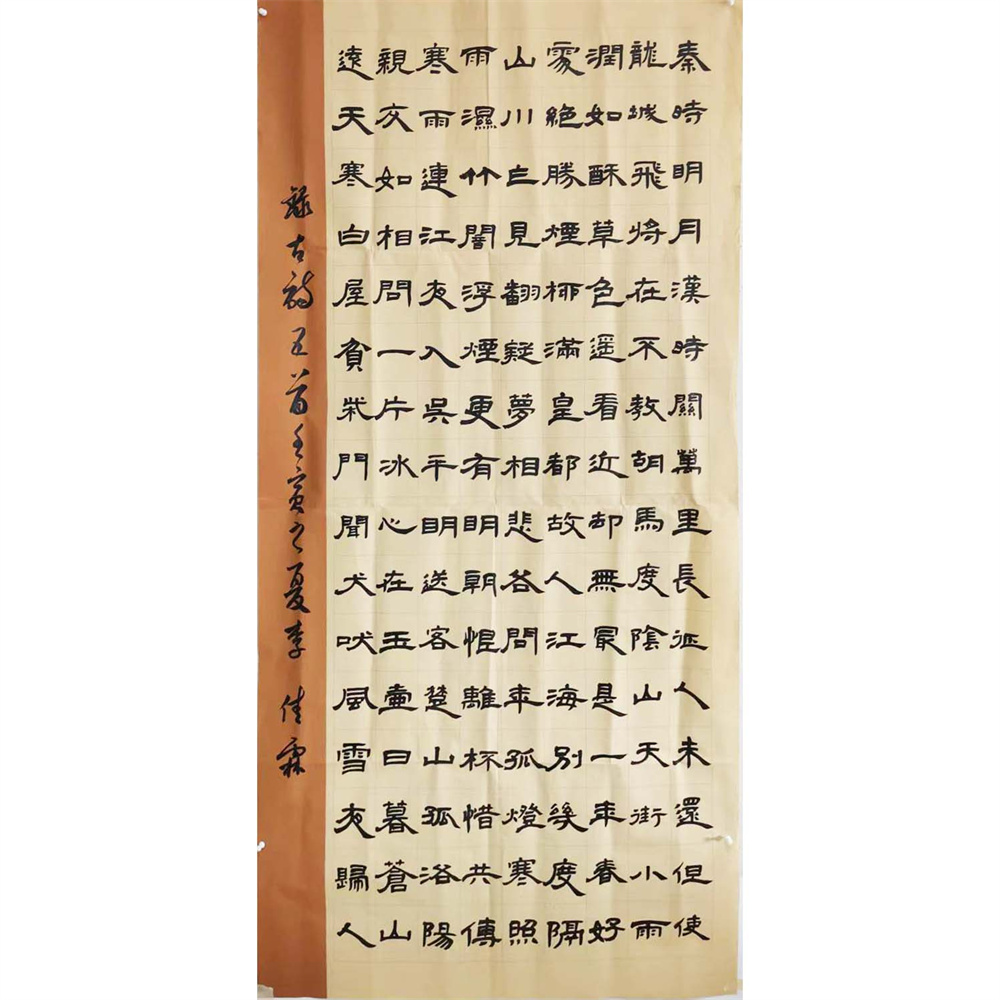 秦時明月漢時關萬里長征人未還但使
龍城飛將在不教胡馬度陰山天街小雨
潤如酥草色遥看近却無最是一年春好
處絕勝煙柳滿皇都故人江海別幾度隔
山川乍見翻疑夢相悲各問年孤燈寒照
雨濕竹闇浮煙更有明朝恨離杯惜共傳
寒雨連江夜入吳平明送客楚山孤洛陽
親友如相問一片冰心在玉壺日暮蒼山
遠天寒白屋貧柴門聞犬吠風雪夜歸人
錄古詩五首壬寅之夏李佳霖